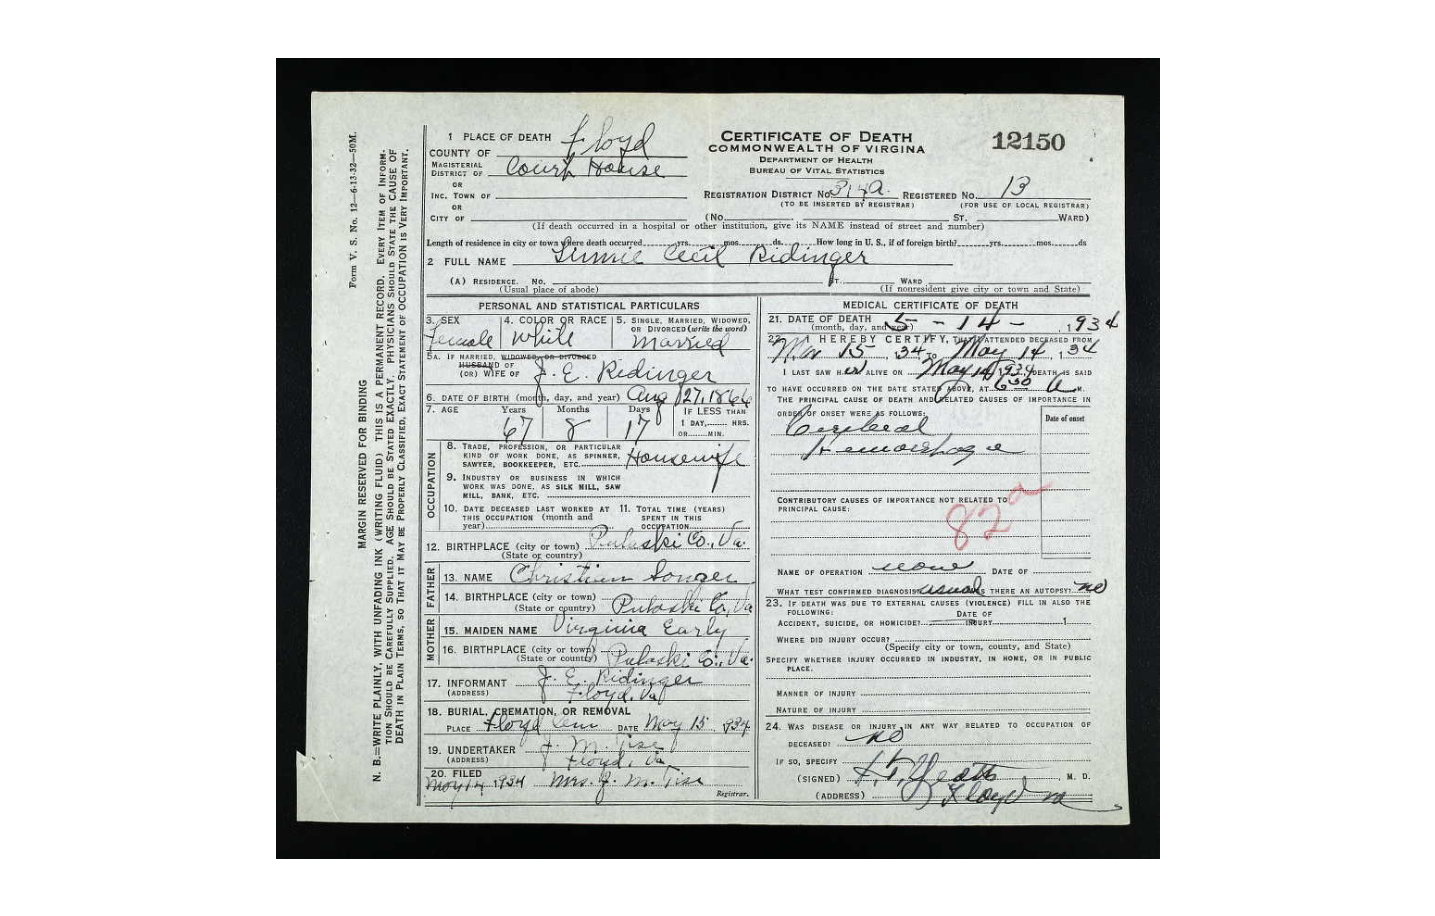 Form V. S. No. 12—6-13-32—50M.
MARGIN RESERVED FOR BINDING
N. B.—WRITE PLAINLY, WITH UNFADING INK (WRITING FLUID) THIS IS A PERMANENT RECORD. EVERY ITEM OF INFORMA-
TION SHOULD BE CAREFULLY SUPPLIED. AGE SHOULD BE STATED EXACTLY. PHYSICIANS SHOULD STATE THE CAUSE OF
DEATH IN PLAIN TERMS, SO THAT IT MAY BE PROPERLY CLASSIFIED, EXACT STATEMENT OF OCCUPATION IS VERY IMPORTANT.
1 PLACE OF DEATH
COUNTY OF Floyd
MAGISTERIAL DISTRICT OF Court House
OR
INC. TOWN OF
OR
CITY OF
CERTIFICATE OF DEATH
COMMONWEALTH OF VIRGINA
DEPARTMENT OF HEALTH
BUREAU OF VITAL STATISTICS
12150
REGISTRATION DISTRICT No. REGISTERED No. 13
(TO BE INSERTED BY REGISTRAR) (FOR USE OF LOCAL REGISTRAR)
(No. ST. WARD)
(If death occurred in a hospital or other institution, give its NAME instead of street and number)
Length of residence in city or town where death occurred yrs. mos. ds. How long in U. S., if of foreign birth? yrs. mos. ds
2 FULL NAME Cecil Ridinger
(A) RESIDENCE. No. ST. WARD
(Usual place of abode) (If nonresident give city or town and State)
PERSONAL AND STATISTICAL PARTICULARS
3. SEX 4. COLOR OR RACE 5. SINGLE, MARRIED, WIDOWED, OR DIVORCED (write the word)
Female White Married
5A. IF MARRIED, WIDOWED, OR DIVORCED
HUSBAND OF
(OR) WIFE OF J. E. Ridinger
6. DATE OF BIRTH (month, day, and year) Aug 27, 1866
7. AGE Years Months Days IF LESS THAN
67 8 17 1 DAY, HRS.
OR MIN.
OCCUPATION
8. TRADE, PROFESSION, OR PARTICULAR
KIND OF WORK DONE, AS SPINNER, Housewife
SAWYER, BOOKKEEPER, ETC.
9. INDUSTRY OR BUSINESS IN WHICH
WORK WAS DONE, AS SILK MILL, SAW
MILL, BANK, ETC.
10. DATE DECEASED LAST WORKED AT 11. TOTAL TIME (YEARS)
THIS OCCUPATION (month and SPENT IN THIS
year) OCCUPATION
12. BIRTHPLACE (city or town) Pulaski Co., Va.
(State or country)
FATHER
13. NAME Christian Songer
14. BIRTHPLACE (city or town)
(State or country) Pulaski Co., Va
MOTHER
15. MAIDEN NAME Virginia Early
16. BIRTHPLACE (city or town)
(State or country) Pulaski Co., Va.
17. INFORMANT J. E. Ridinger
(ADDRESS) Floyd, Va
18. BURIAL, CREMATION, OR REMOVAL
PLACE Floyd Cem DATE May 15 1934
19. UNDERTAKER J. M. Tise
(ADDRESS) Floyd, Va
20. FILED May 14 1934 Mrs. J. M. Tise
Registrar.
MEDICAL CERTIFICATE OF DEATH
21. DATE OF DEATH (month, day, and year) 5-14-, 1934
22. I HEREBY CERTIFY, THAT I ATTENDED DECEASED FROM
15, 34 TO May 14, 134
I LAST SAW HER ALIVE ON May 14 1934 DEATH IS SAID
TO HAVE OCCURRED ON THE DATE STATED ABOVE, AT 630 A M.
THE PRINCIPAL CAUSE OF DEATH AND RELATED CAUSES OF IMPORTANCE IN
ORDER OF ONSET WERE AS FOLLOWS: Date of onset
Cerebral
Hemorrhage
CONTRIBUTORY CAUSES OF IMPORTANCE NOT RELATED TO
PRINCIPAL CAUSE:
82a
NAME OF OPERATION none DATE OF
WHAT TEST CONFIRMED DIAGNOSIS usual IS THERE AN AUTOPSY? no
23. IF DEATH WAS DUE TO EXTERNAL CAUSES (VIOLENCE) FILL IN ALSO THE
FOLLOWING:
DATE OF
ACCIDENT, SUICIDE, OR HOMICIDE? INJURY 1
WHERE DID INJURY OCCUR?
(Specify city or town, county, and State)
SPECIFY WHETHER INJURY OCCURRED IN INDUSTRY, IN HOME, OR IN PUBLIC
PLACE.
MANNER OF INJURY
NATURE OF INJURY
24. WAS DISEASE OR INJURY IN ANY WAY RELATED TO OCCUPATION OF
DECEASED? no
IF SO, SPECIFY
(SIGNED) M. D.
(ADDRESS) Floyd Va